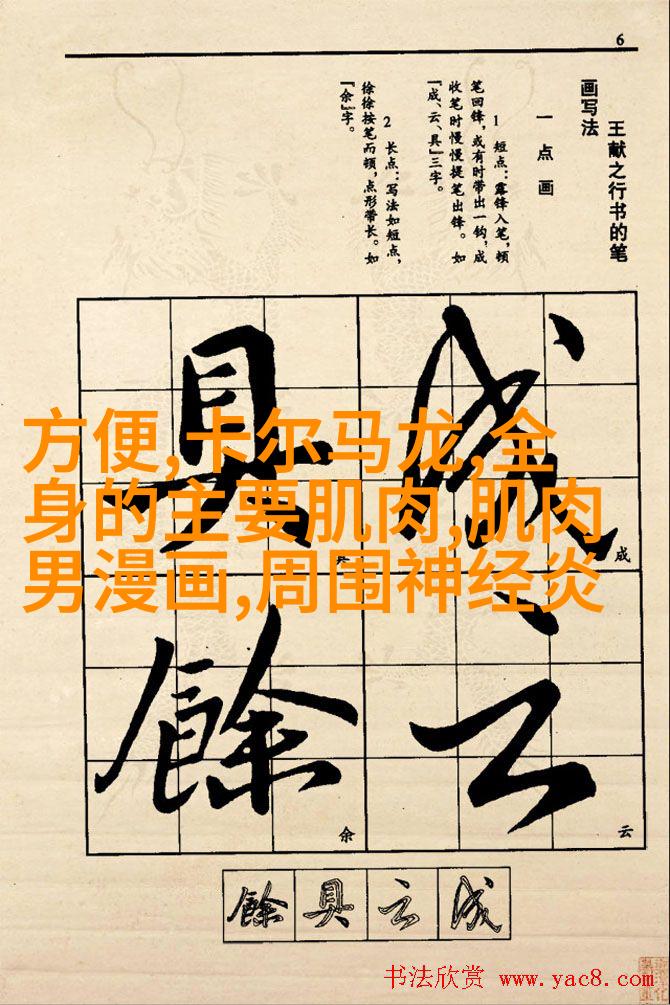 6
王献之行书的笔
画写法
一 点 画
1 短点:露锋入笔,顿
笔回锋,或有时带出一钩,成
收笔时慢慢提笔出锋。如
『成、云、具』三字。
2 长点:写法如短点,
徐徐按笔而顿,点形带长。如
『余』字。
成
具
云
餘
成
具
云
余
方便,卡尔马龙,全
身的主要肌肉,肌肉
男漫画,周围神经炎
餘 具 云 成
书法欣赏 www.yac8.com